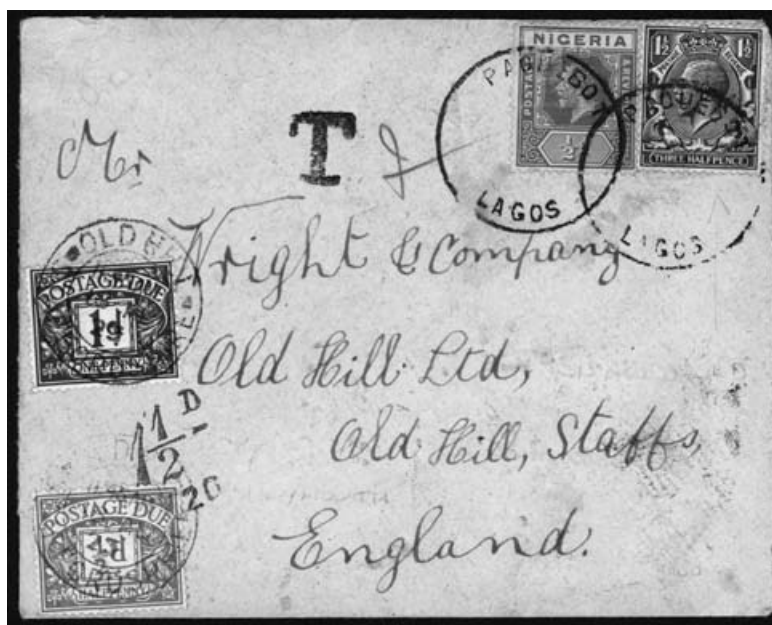 NIGERIA
POSTAGE
½
1½ 1½
POSTAGE
THREE HALFPENCE
PAQUEBOT
LAGOS
PAQUEBOT
LAGOS
T
Mr
Wright & Company
Old Hill Ltd,
Old Hill, Staffs,
England.
OLD HILL
POSTAGE DUE
1d
ONE PENNY
1½D
26
POSTAGE DUE
HALFPENNY